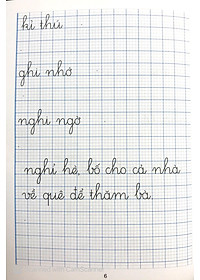 kì thú
ghi nhớ
nghi ngờ
nghỉ hè, bố cho cả nhà
về quê để thăm bà.
6